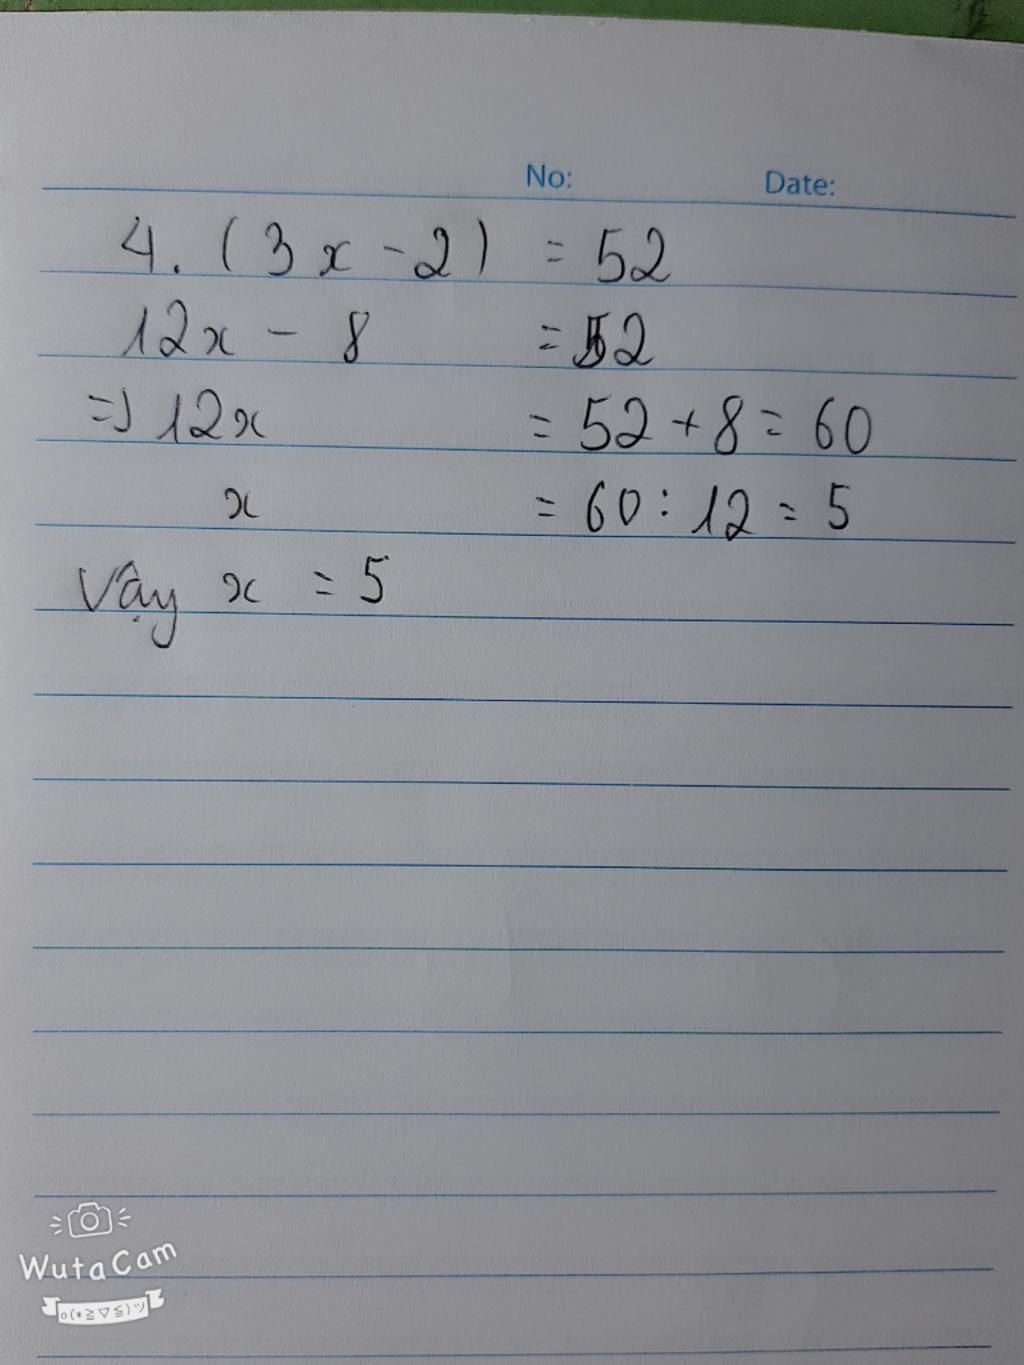 No: Date:
4. (3x - 2) = 52
12x - 8 = 52
=> 12x = 52 + 8 = 60
x = 60 : 12 = 5
Vậy x = 5
WutaCam
o(*≧▽≦)ツ